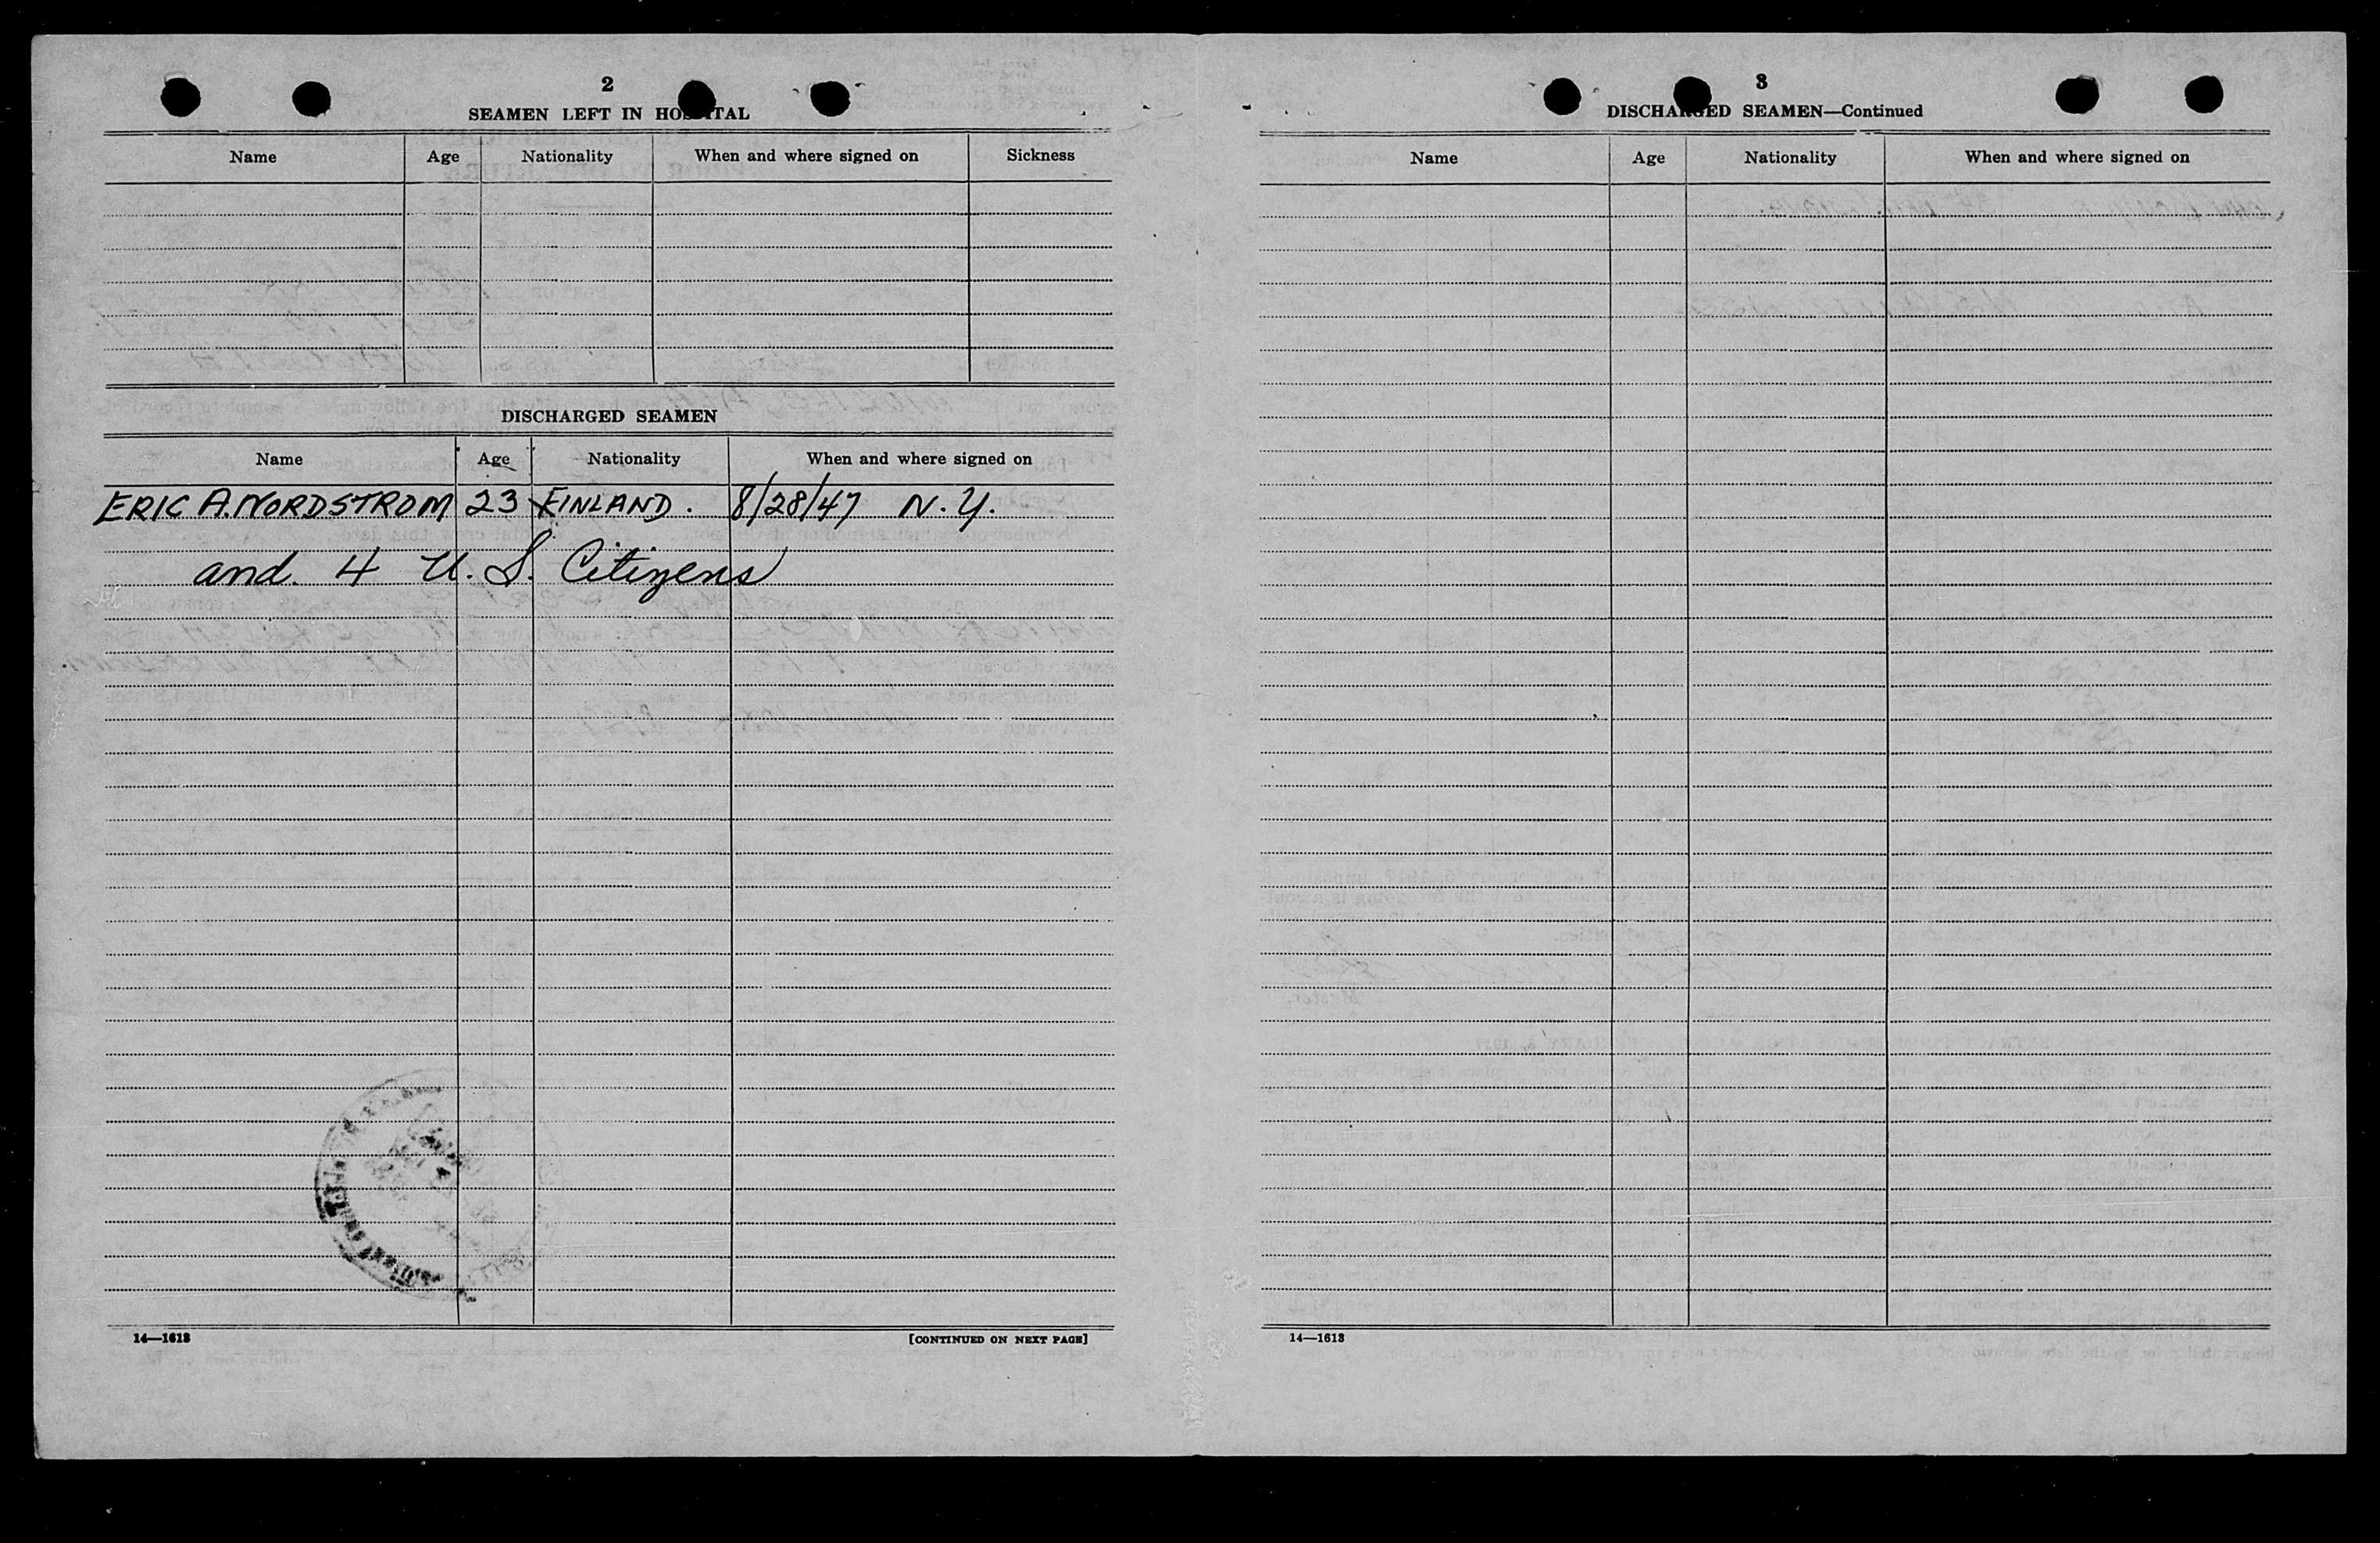 2
SEAMEN LEFT IN HOSPITAL
Name Age Nationality When and where signed on Sickness
DISCHARGED SEAMEN
Name Age Nationality When and where signed on
ERIC A. NORDSTROM 23 FINLAND. 8/28/47 N.Y.
and 4 U.S. Citizens
14—1613
[CONTINUED ON NEXT PAGE]
3
DISCHARGED SEAMEN—Continued
Name Age Nationality When and where signed on
14—1613